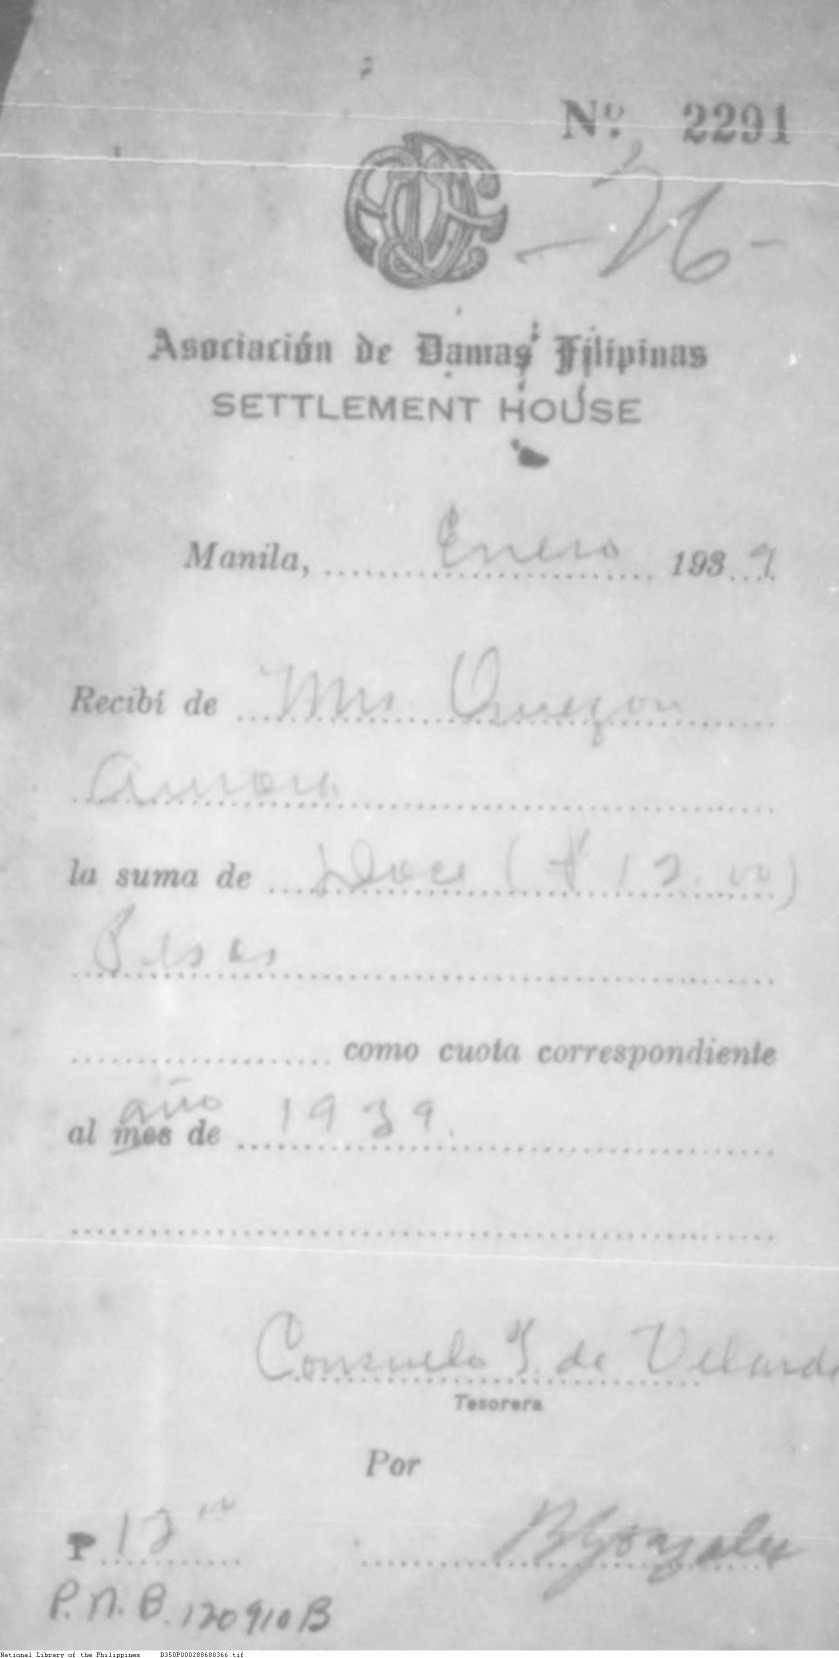 Nº 2291
-36-
Asociación de Damas Filipinas
SETTLEMENT HOUSE
Manila, Enero 1939
Recibí de Mrs. Quezon
Aurora
la suma de Doce (₱ 12.00)
Pesos
como cuota correspondiente
año
al mes de 1939.
Consuelo de Velarde
Tesorera
Por
₱ 12 00 B Gonzales
P.N.B. 120910B
National Library of the Philippines D350P000288680366.tif